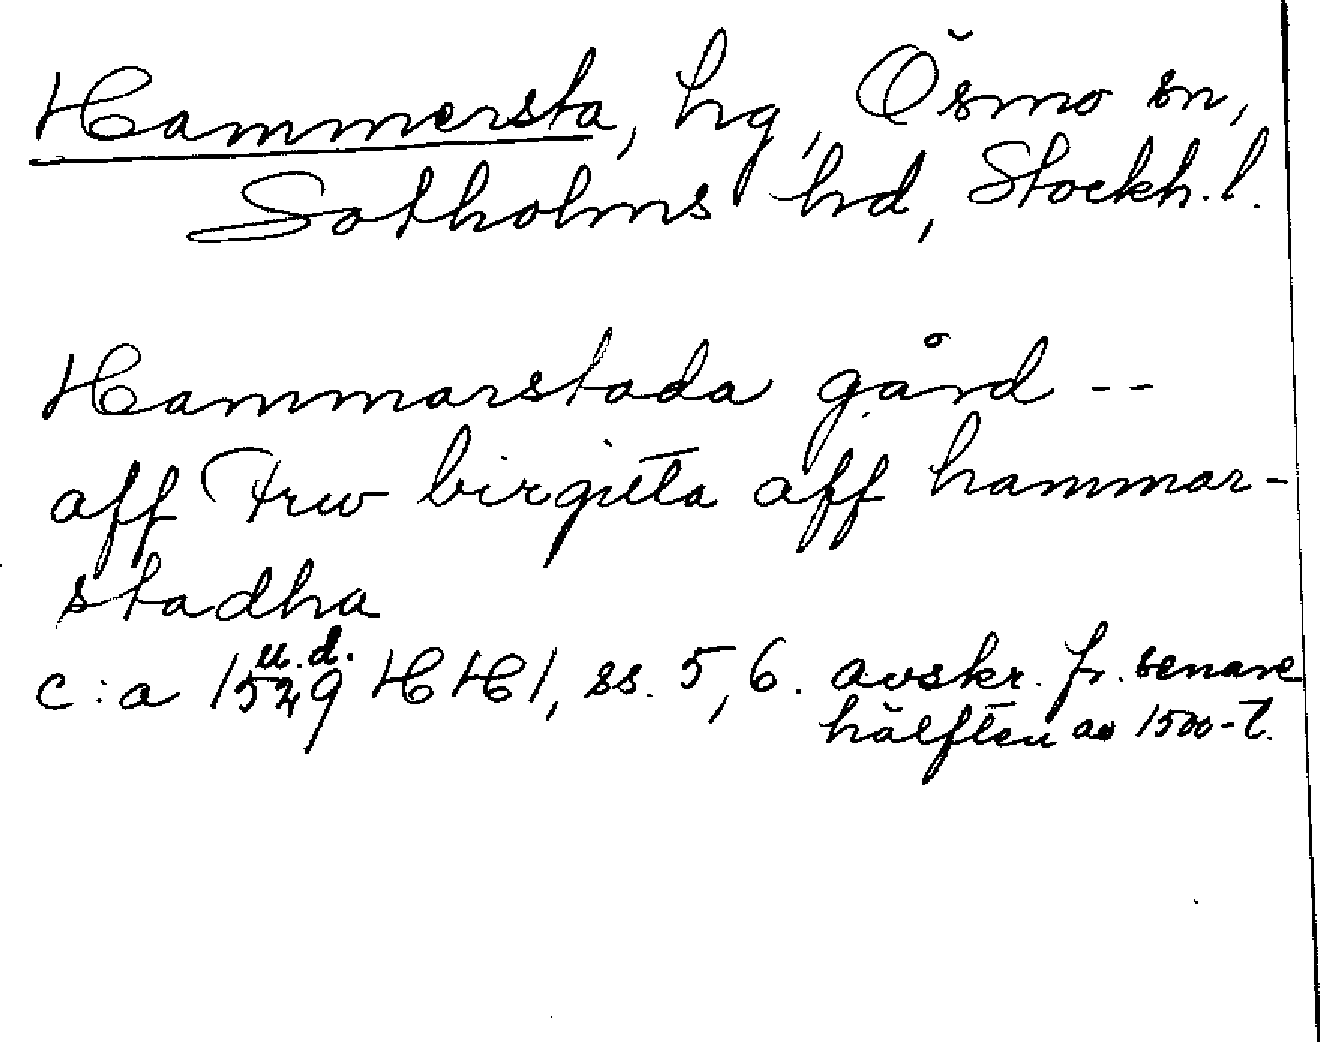 Hammersta, hg, Ösmo sn,
Sotholms hd, Stockh. l.
Hammarstada gård --
aff Frw birgitta aff hammar-
stadha
u.d.
c:a 1529 HH 1, ss. 5, 6. avskr. fr. senare
hälften av 1500-t.